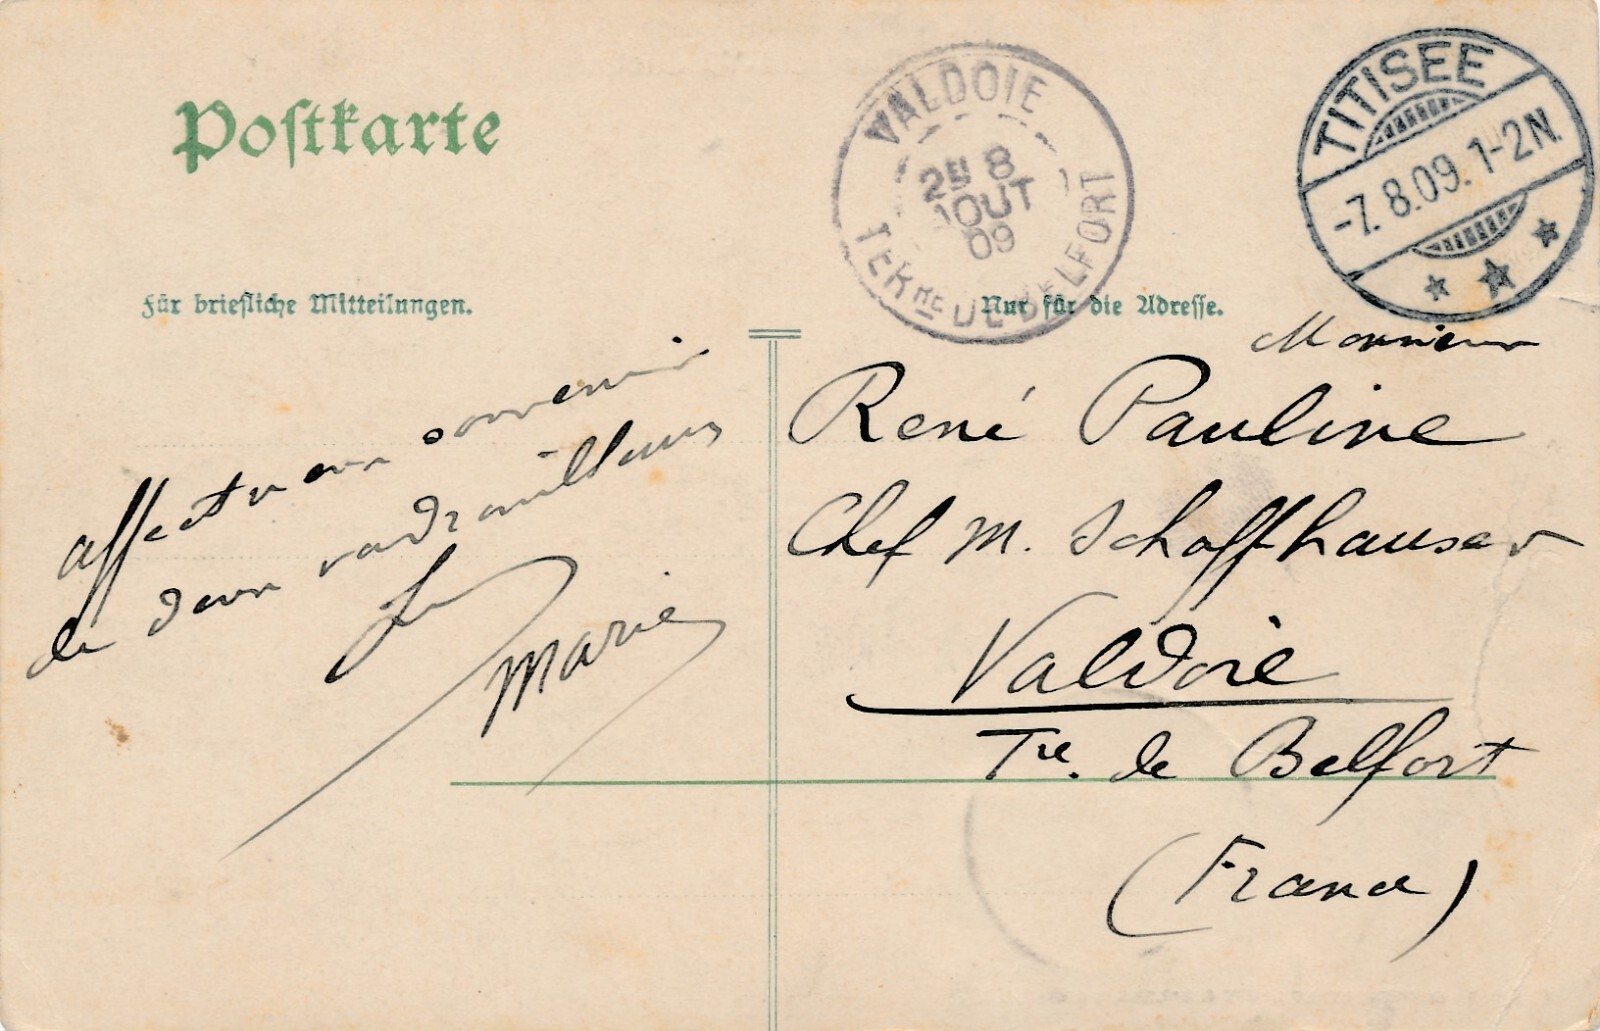 Postkarte
VALDOIE
8
AOUT
09
TERRre DE BELFORT
TITISEE
-7.8.09. 1-2N.
Für briefliche Mitteilungen.
Nur für die Adresse.
affectueux souvenir
de deux vadrouilleurs
Marie
Monsieur
René Pauline
Chef M. Schaffhauser
Valdoie
Tre. de Belfort
(France)